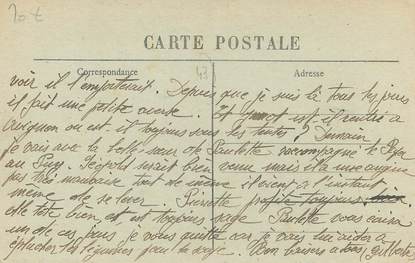 20 €
CARTE POSTALE
Correspondance
43
Adresse
voir il l'emporterait. Depuis que je suis là tous les jours
il fait une petite averse. Et est-il rentré à
Avignon ou est-il toujours sous les tentes ? Demain
je vais avec la belle-sœur de Paulette raccompagné le
au Puy. Léopold serait bien venu mais il a une angine
pas très mauvaise tout de même il vient à l'instant
même de se lever. Pierrette profite toujours bien.
elle tète bien et est toujours sage. Paulette vous écrira
un de ces jours je vous quitte car je vais lui aider à
éplucher les légumes pour la soupe. Bons baisers à tous. Gilberte